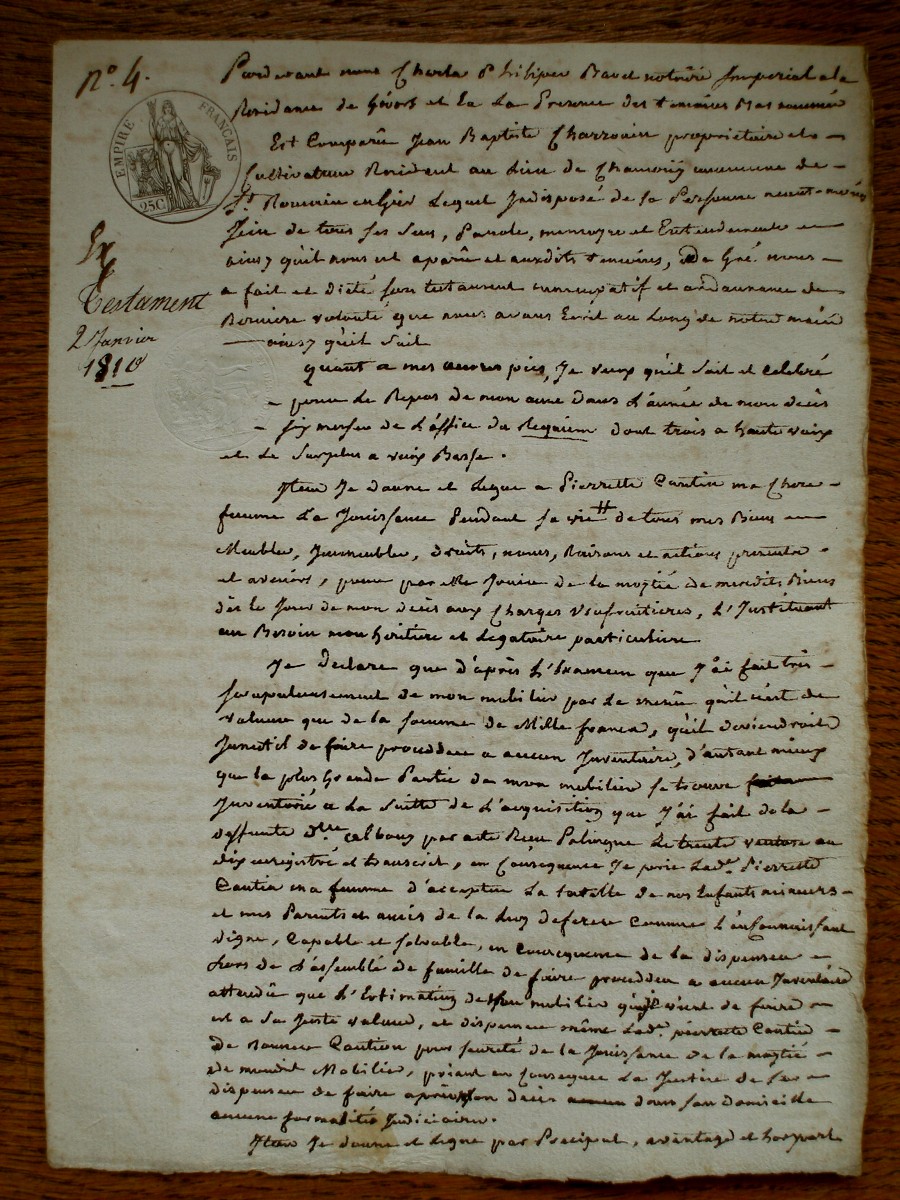 N.o 4.
EMPIRE FRANÇAIS
25C
Ex
Testament
2 Janvier
1810
Pardevant nous Charles Philipes notaire Imperial a la
Residance de Givors et En La Presence des temoins Bas nommés
Est Comparû Jean Baptiste proprietaire et
Cultivateur Resident au Lieu de commune de
St. Romain en Gier Lequel Indisposé de sa Personne neant-moins
Sein de tous ses Sens, Parole, memoyre et Entendement
ainsy qu'il nous est aparû et auxdits temoins, De Gré nous
a fait et dicté son testament nuncupatif et ordaunance de
Derniere volonté que nous avons Ecrit au Long de notre main
ainsy qu'il Suit
quant a mes œuvres pies, Je veux qu'il Soit et celebré
pour Le Repos de mon ame dans L'année de mon decès
six messes de L'office du Requiem dont trois a haute voix
et Le Surplus a voix Basse.
Item Je donne et Legue a Pierrette Cantin ma Chere
femme La Jouissance Pendant sa vie de tous mes Biens
Meubles, Immeubles, droits, noms, Raisons et actions presents
et avenirs, pour par elle Jouir de la moytié de mesdits Biens
dès le Jour de mon decès aux Charges Usufruitieres, L'Instituant
au Besoin mon heritiere et Legataire particuliere
Je Declare que d'après L'Examen que J'ai fait très
scrupuleusement de mon mobilier par Le menu qu'il n'est de
valeur que de la somme de Mille francs, qu'il deviendroit
Inutil de faire procedder a aucun Inventaire, d'autant mieux
que la plus Grande Partie de mon mobilier se trouve
Inventorié a La Suitte de L'acquisition que J'ai fait de la
deffunte par acte Reçu Le trente ventose an
dix enregistré et transcrit, en Consequence Je prie Lade. Pierrette
Cantin ma femme d'accepter La tutelle de nos Enfants mineurs
et mes Parents et amis de la Luy deferer Comme L'En connaissant
digne, Capable et solvable, en Consequence de la dispenser
Lors de L'assemblé de famille de faire procedder a aucun Inventaire
attendû que L'Estimation de mon mobilier vient de faire
est a sa Juste valeur, et dispenser même Lade. pierrette Cantin
de Donner Caution pour sureté de la Jouissance de la moytié
de mondit Mobilier, priant en Consequence La Justice de Se
dispenser de faire après son decès dans son domicille
aucune formalités Judiciaires.
Item Je donne et Legue par Preciput, avantage et horspart